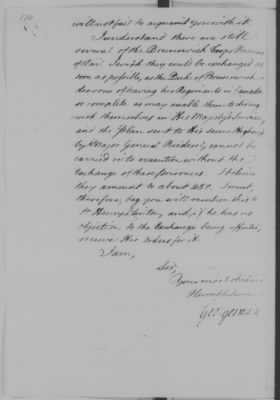 170
will not fail to acquaint you with it.
I understand there are still
several of the Brunswick Corps Prisoners
of War. I wish they could be exchanged as
soon as possible, as the Duke of Brunswick is
desirous of having his Regiments in Canada
so complete as may enable them to
with themselves in His Majesty's Service
and the Plan sent to His Serene Highness
by Major General Reidesel, cannot be
carried into execution without the
Exchange of these Prisoners. I believe
they amount to about 250. I must,
therefore, beg you will mention this
to Henry Clinton, and, if he has no
objection to the Exchange being effected,
receive His orders for it.
I am,
Sir,
Your most obedient
Humble Servant
Geo: Germain